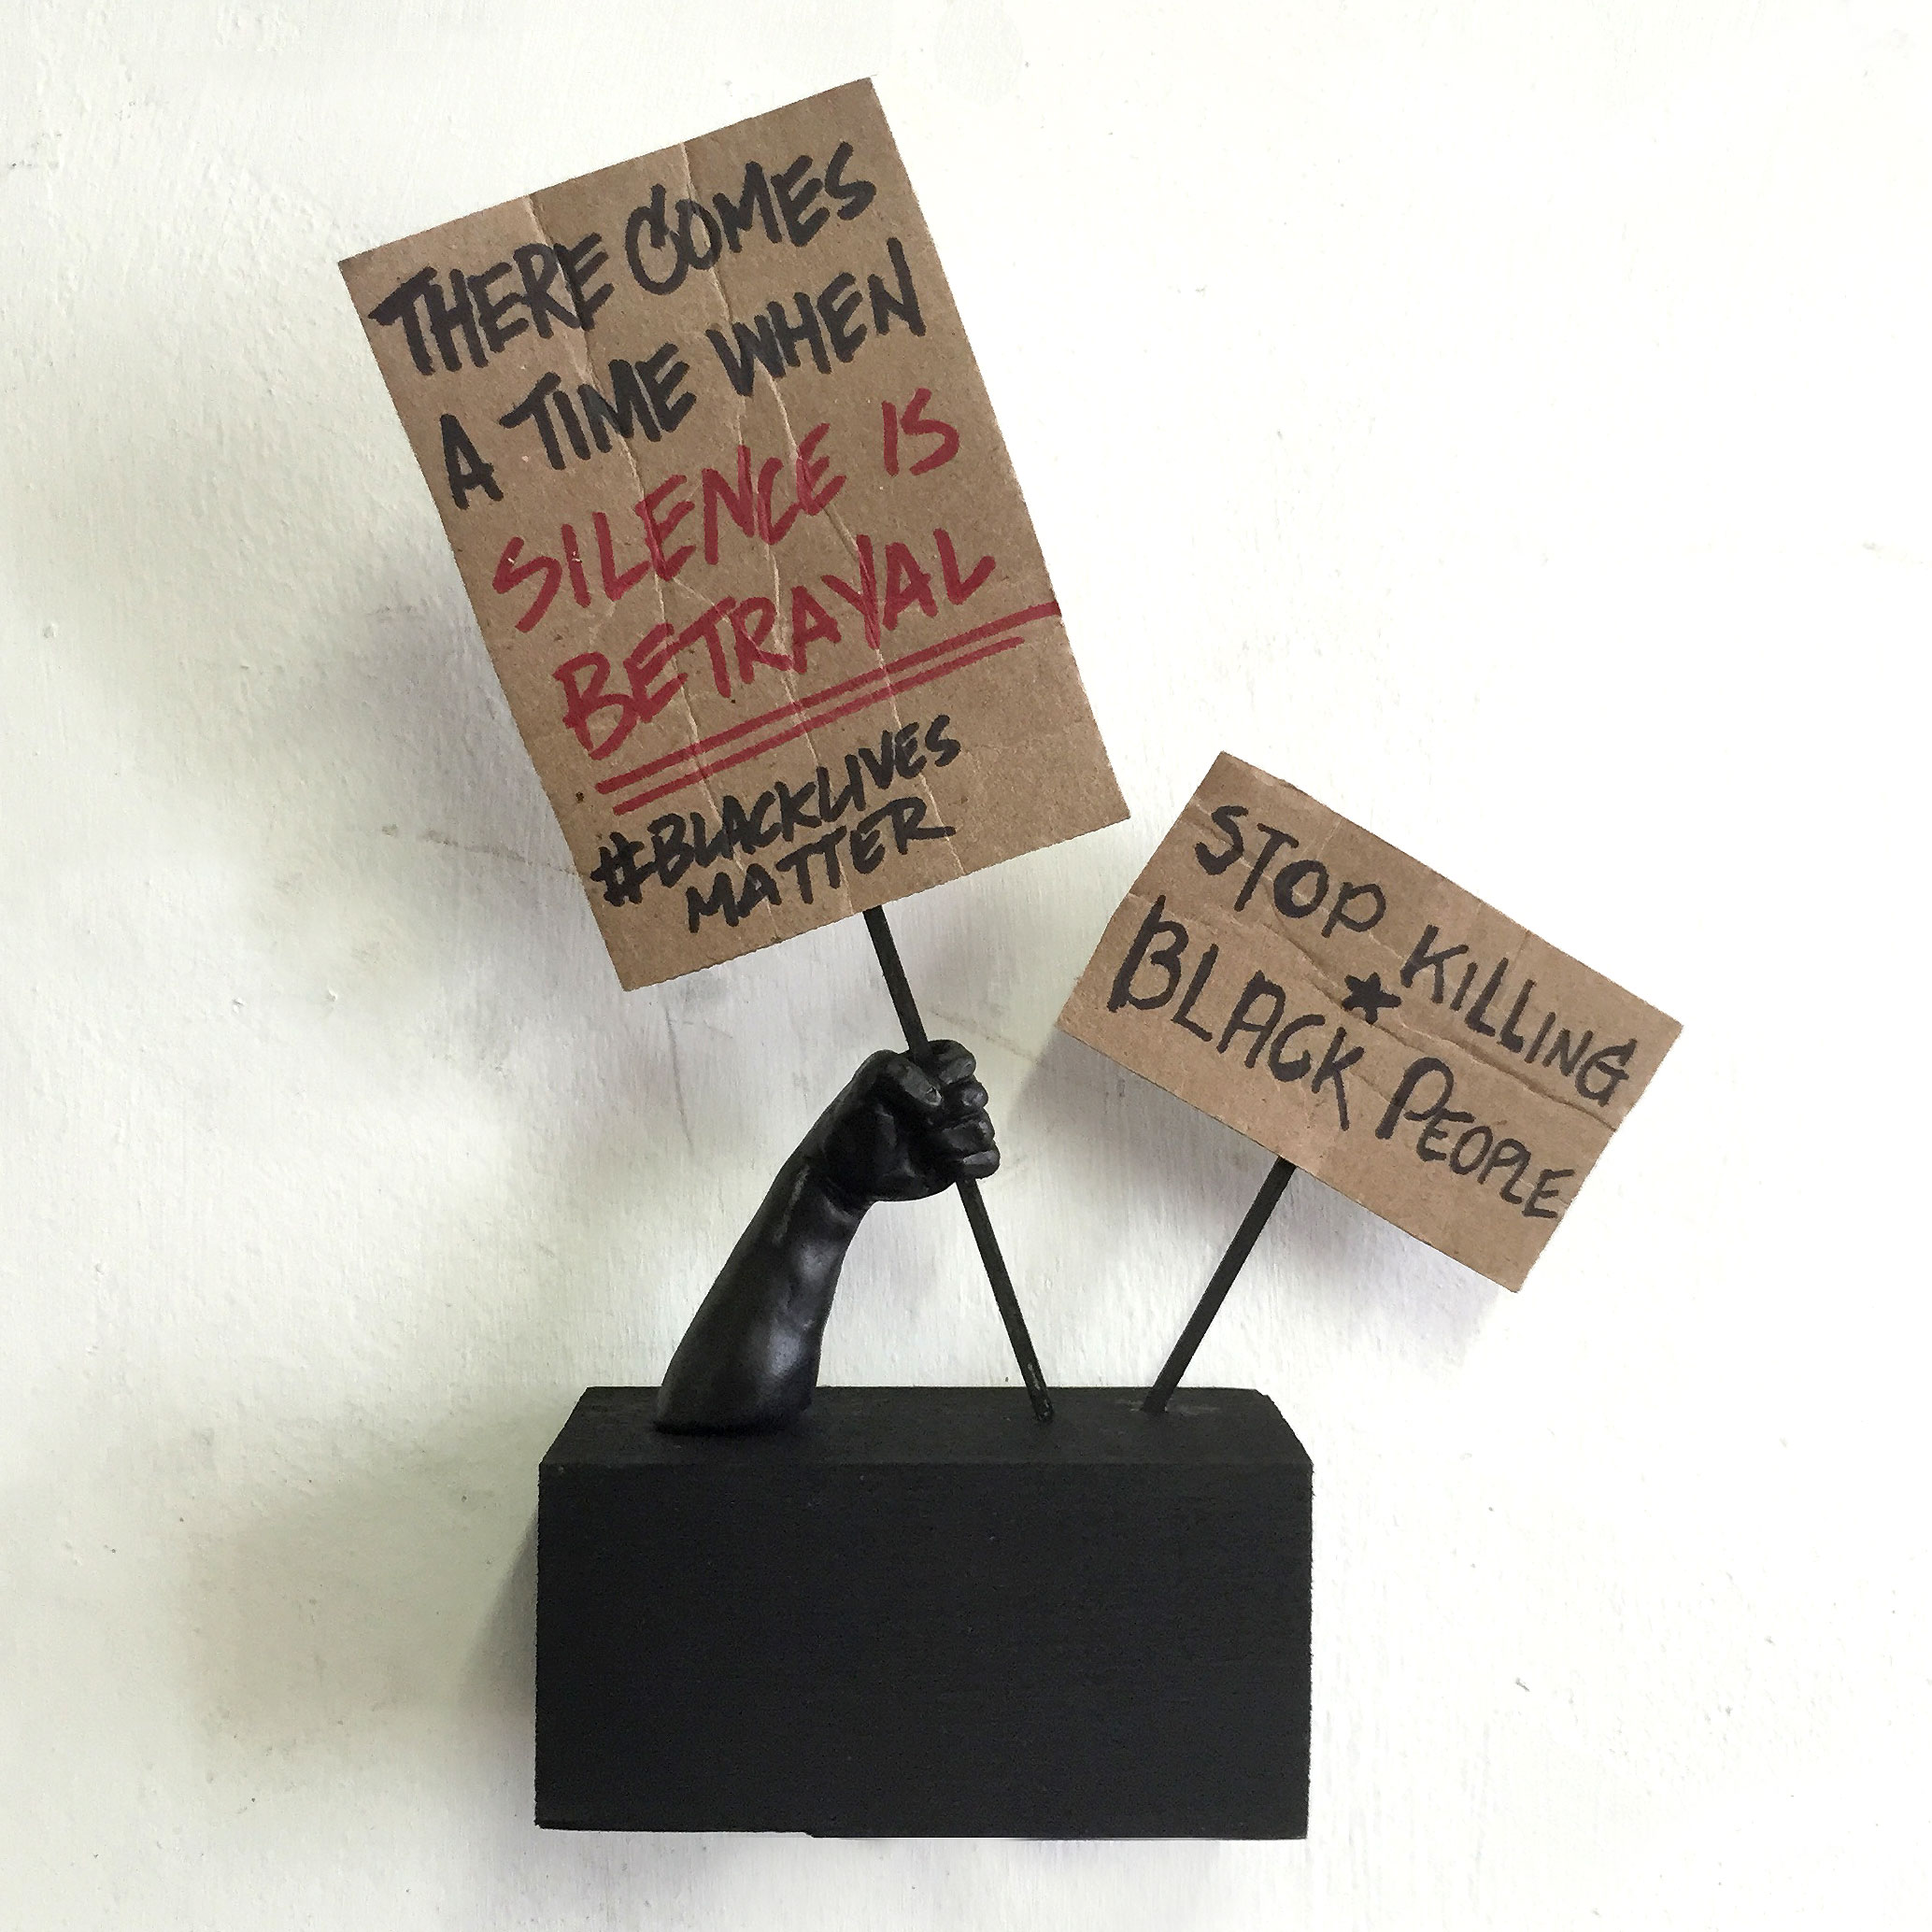 THERE COMES
A TIME WHEN
SILENCE IS
BETRAYAL
#BLACKLIVES
MATTER
STOP KILLING
BLACK PEOPLE